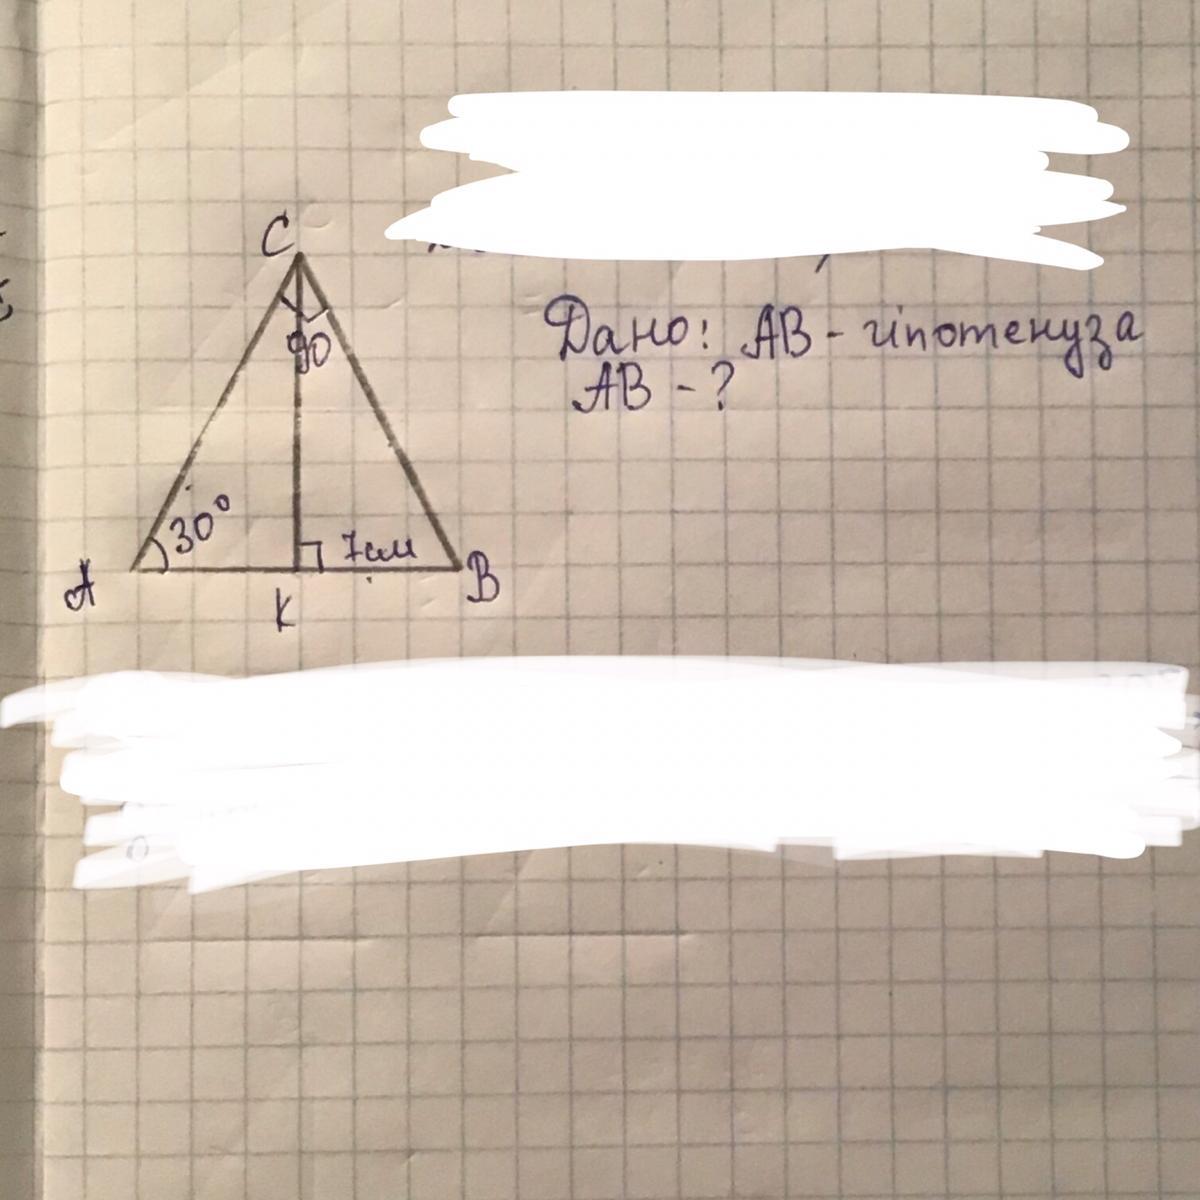 C
Дано: AB - гіпотенуза
AB - ?
90
30°
7см
A
K
B